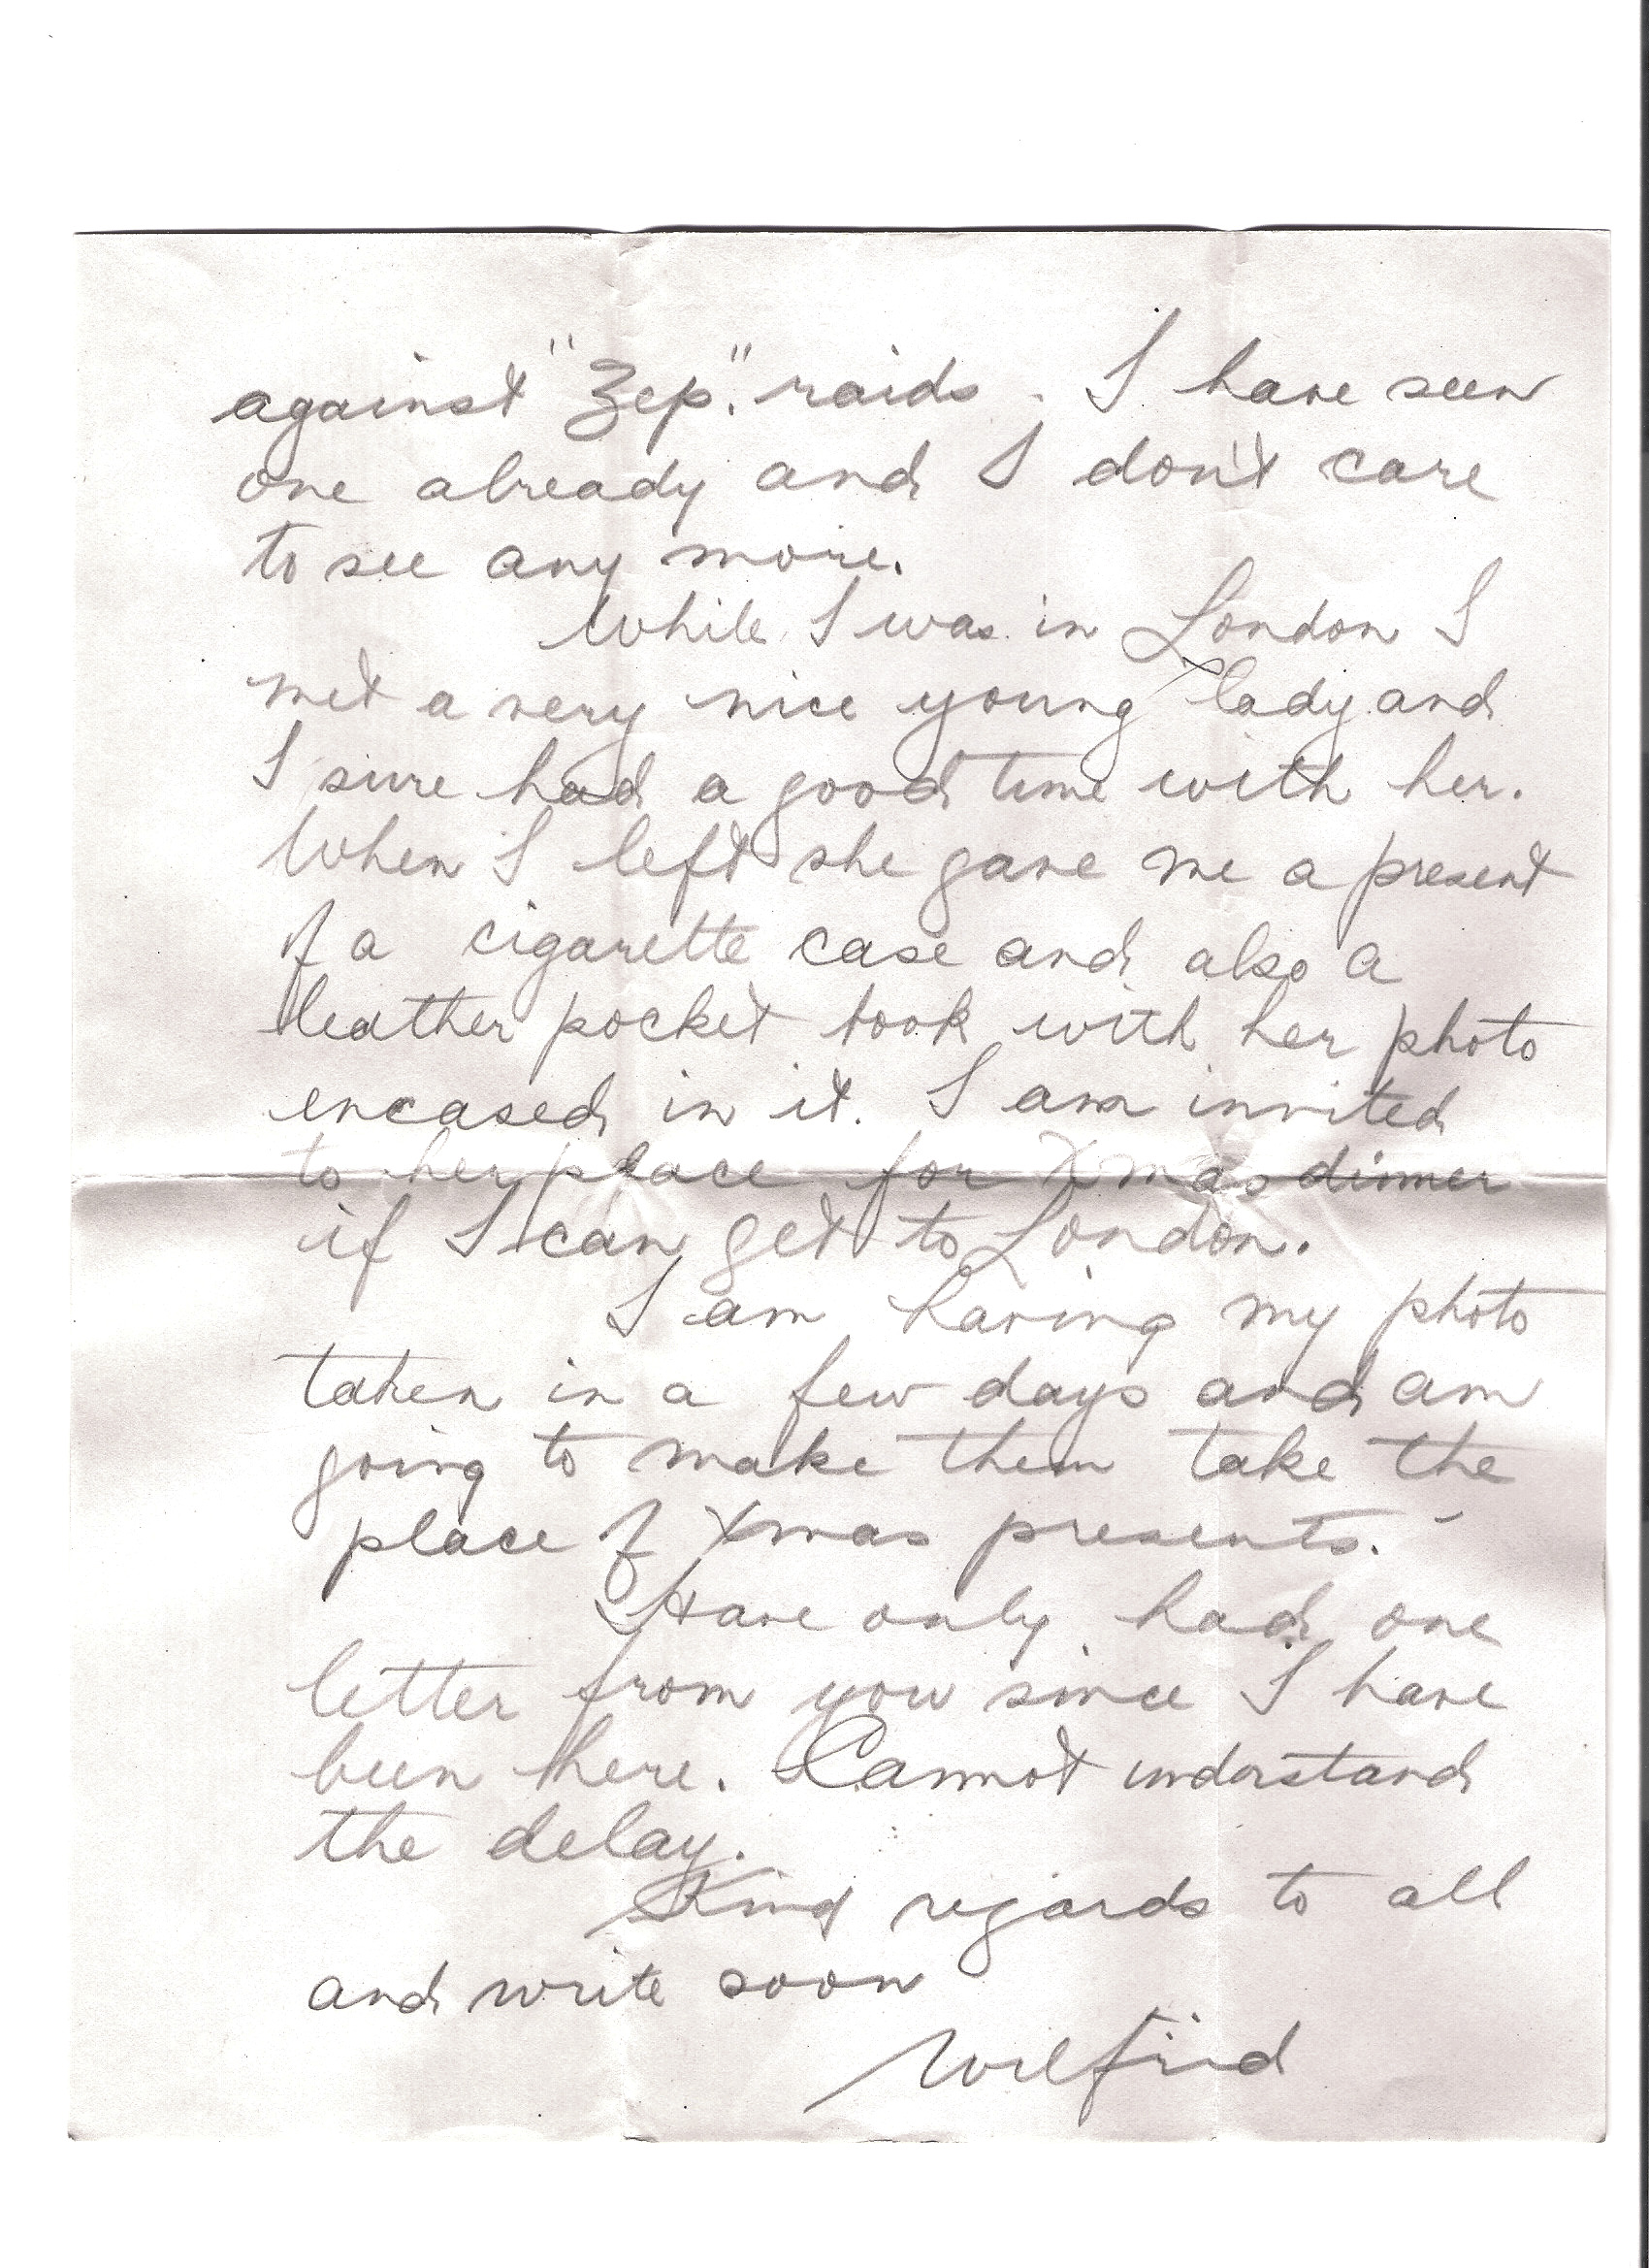 against "Zep." raids. I have seen
one already and I don't care
to see any more.
While I was in London I
met a very nice young lady and
I sure had a good time with her.
When I left she gave me a present
of a cigarette case and also a
leather pocket book with her photo
encased in it. I am invited
to her place for Xmas dinner
if I can get to London.
I am having my photo
taken in a few days and am
going to make them take the
place of Xmas presents. -
Have only had one
letter from you since I have
been here. Cannot understand
the delay.
Kind regards to all
and write soon
Wilfrid